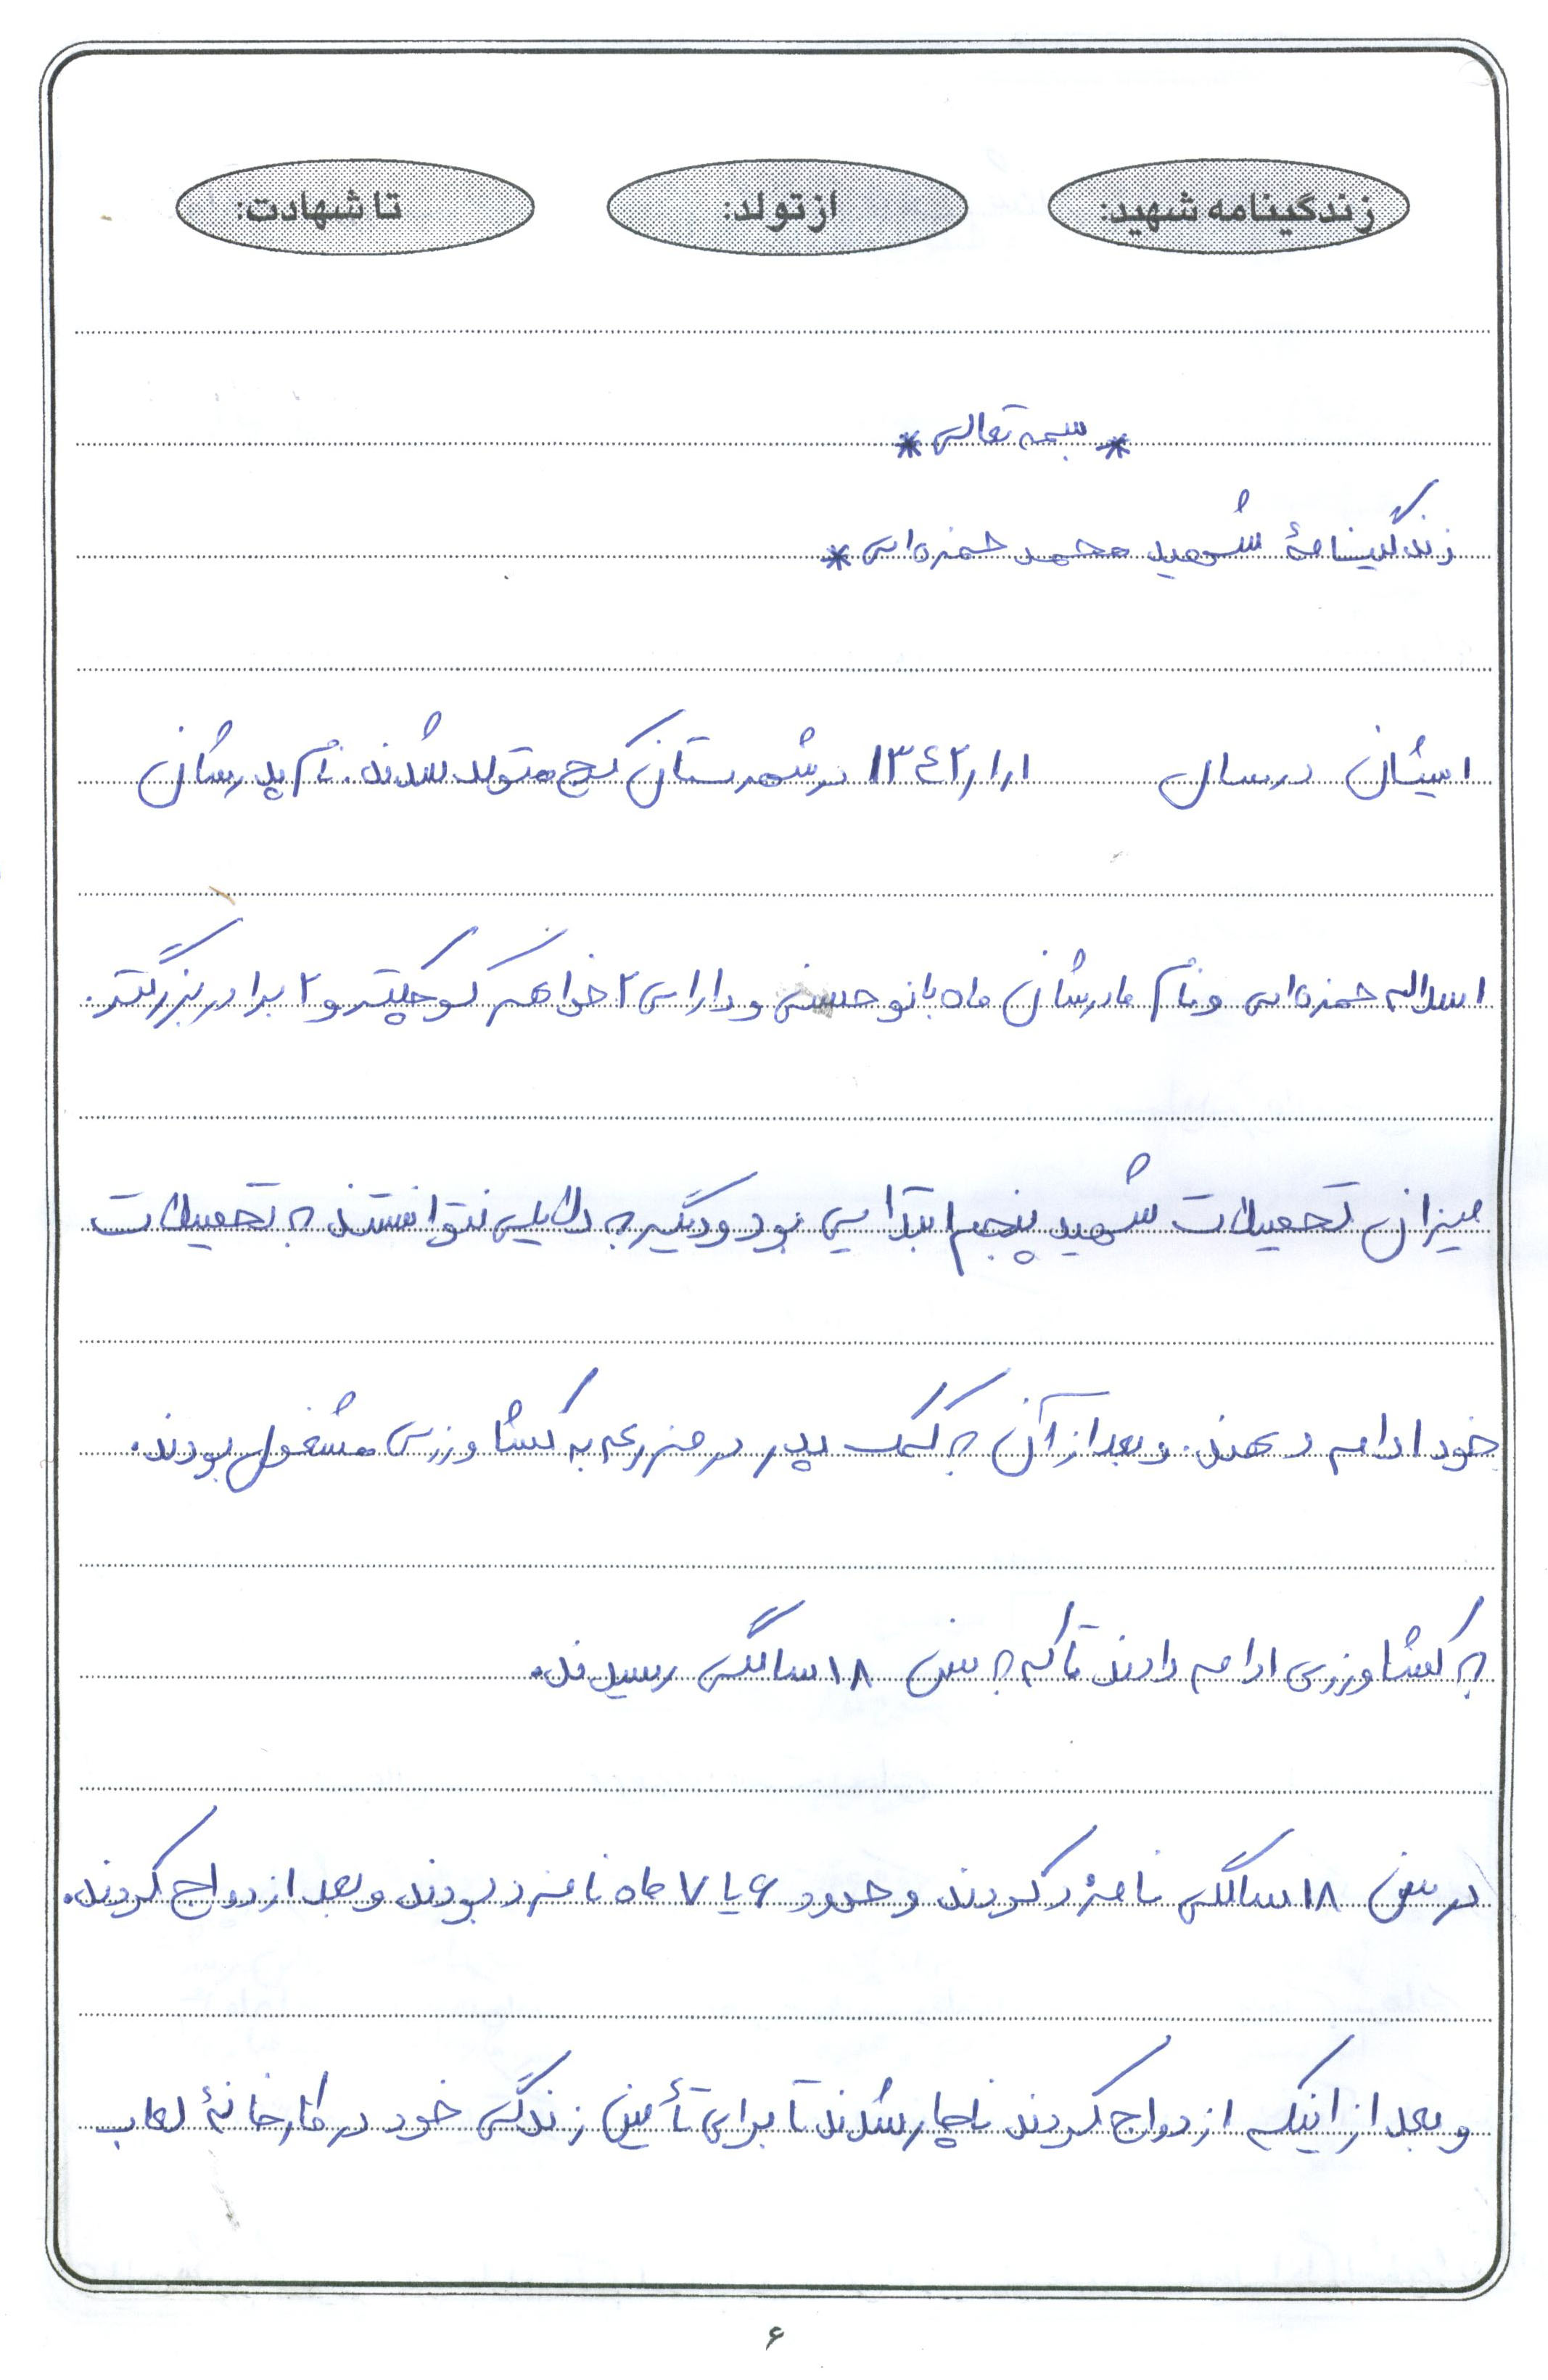 زندگینامه شهید: از تولد: تا شهادت:
* بسمه تعالی *
زندگینامهٔ شهید محمد حمزه‌ای *
ایشان در سال ۱۳۴۲/۱/۱ در شهرستان کرج متولد شدند. نام پدرشان
اسداله حمزه‌ای و نام مادرشان ماه بانو حسنی و دارای ۲ خواهر کوچکتر و ۲ برادر بزرگتر.
میزان تحصیلات شهید پنجم ابتدایی بود و دیگر به دلایلی نتوانستند به تحصیلات
خود ادامه دهند. و بعد از آن به کمک پدر در مزرعه به کشاورزی مشغول بودند.
به کشاورزی ادامه دادند تا که به سن ۱۸ سالگی رسیدند.
در سن ۱۸ سالگی نامزد کردند و حدود ۶ یا ۷ ماه نامزد بودند و بعد ازدواج کردند.
و بعد از اینکه ازدواج کردند ناچار شدند تا برای تأمین زندگی خود در کارخانهٔ لعاب
۶